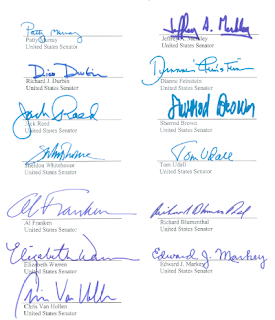 Patty Murray
Jeffrey A. Merkley
Patty Murray
Jeffrey A. Merkley
United States Senator
United States Senator
Dick Durbin
Dianne Feinstein
Richard J. Durbin
Dianne Feinstein
United States Senator
United States Senator
Jack Reed
Sherrod Brown
Jack Reed
Sherrod Brown
United States Senator
United States Senator
Tom Udall
Sheldon Whitehouse
Tom Udall
United States Senator
United States Senator
Al Franken
Richard Blumenthal
Al Franken
Richard Blumenthal
United States Senator
United States Senator
Elizabeth Warren
Edward J. Markey
Elizabeth Warren
Edward J. Markey
United States Senator
United States Senator
Chris Van Hollen
Chris Van Hollen
United States Senator